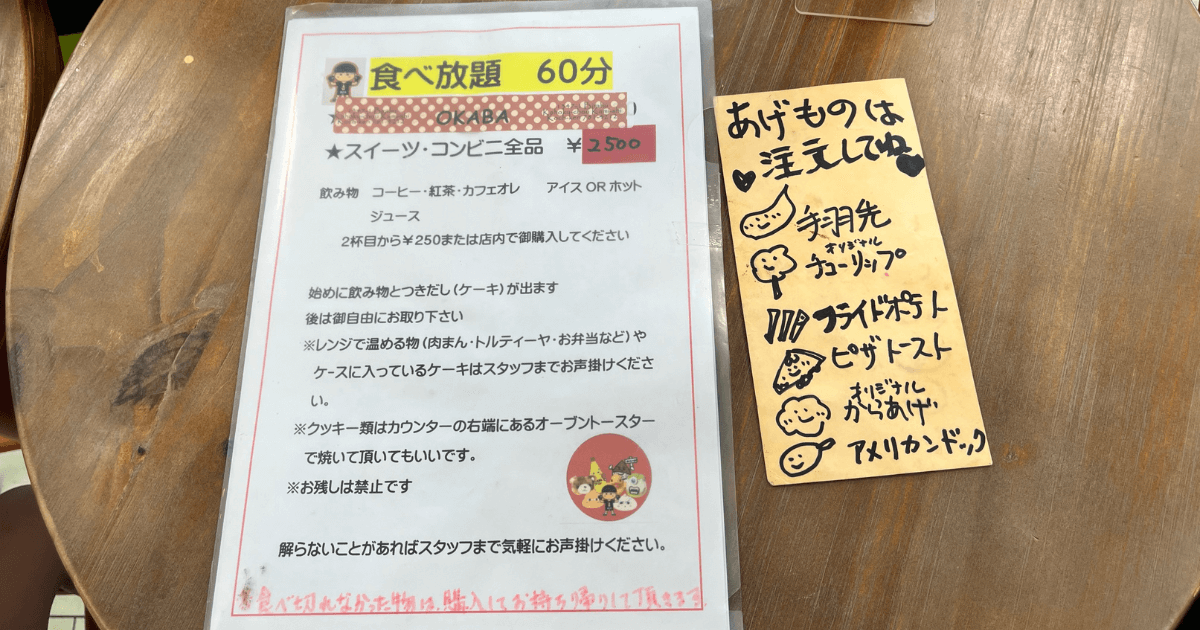 食べ放題 60分
OKABA
★スイーツ・コンビニ全品 ¥2500
飲み物 コーヒー・紅茶・カフェオレ アイス OR ホット
ジュース
2杯目から¥250または店内で御購入してください
始めに飲み物とつきだし(ケーキ)が出ます
後は御自由にお取り下さい
※レンジで温める物(肉まん・トルティーヤ・お弁当など)や
ケースに入っているケーキはスタッフまでお声掛けくださ
い。
※クッキー類はカウンターの右端にあるオーブントースター
で焼いて頂いてもいいです。
※お残しは禁止です
解らないことがあればスタッフまで気軽にお声掛けください。
食べ切れなかった物は、購入してお持ち帰りして頂きます
あげものは
注文してね
手羽先
オリジナル
チューリップ
フライドポテト
ピザトースト
オリジナル
からあげ
アメリカンドック